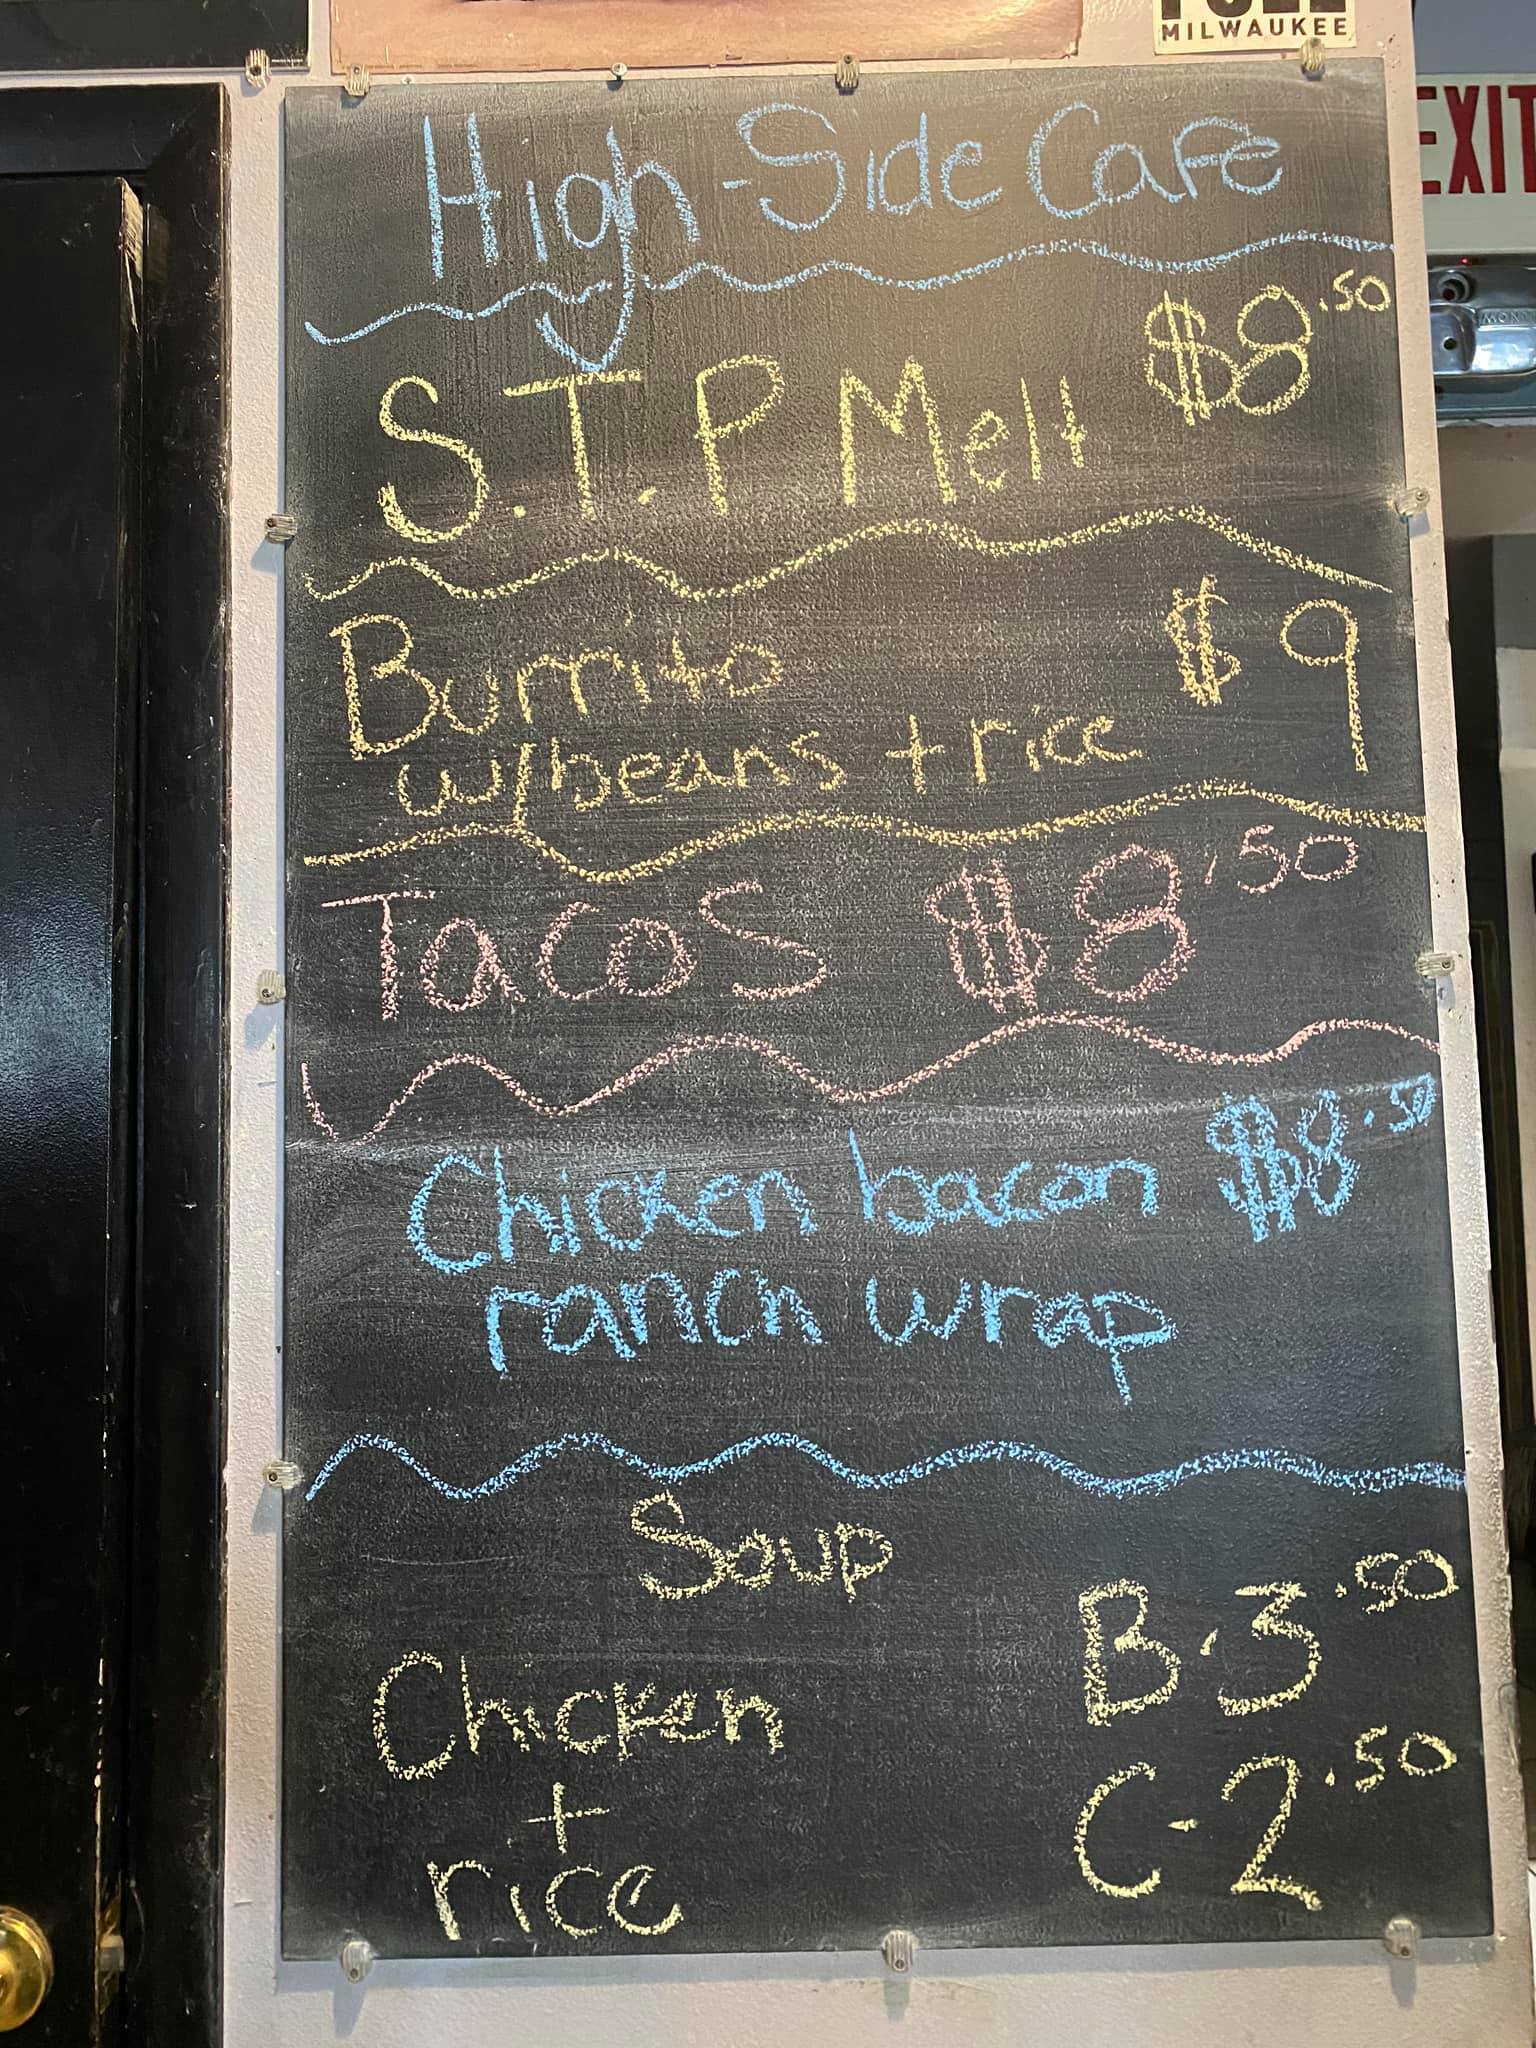 MILWAUKEE
EXIT
High-Side Cafe
S.T.P Melt $8.50
Burrito $9
w/beans + rice
Tacos $8.50
Chicken bacon $8.50
ranch wrap
Soup
Chicken B.3.50
+
rice C-2.50